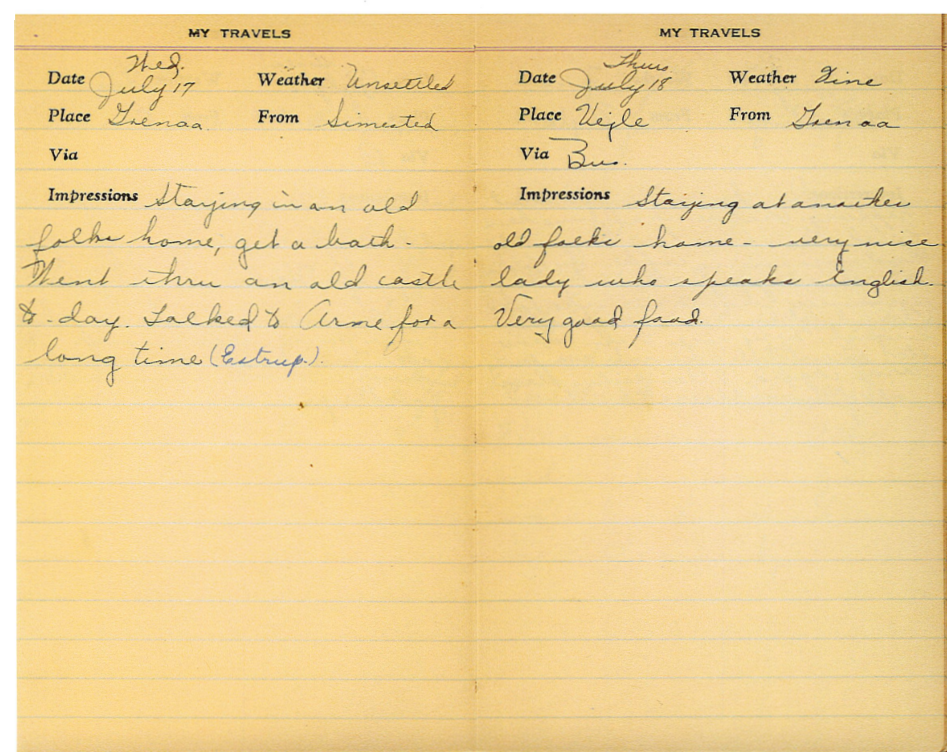 MY TRAVELS
Wed.
Date July 17 Weather Unsettled
Place Grenaa From Simested
Via
Impressions Staying in an old
folks home, get a bath.
Went thru an old castle
to-day. Talked to Arne for a
long time (Estrup.).
MY TRAVELS
Thurs
Date July 18 Weather Fine
Place Vejle From Grenaa
Via Bus.
Impressions Staying at another
old folks home - very nice
lady who speaks English.
Very good food.